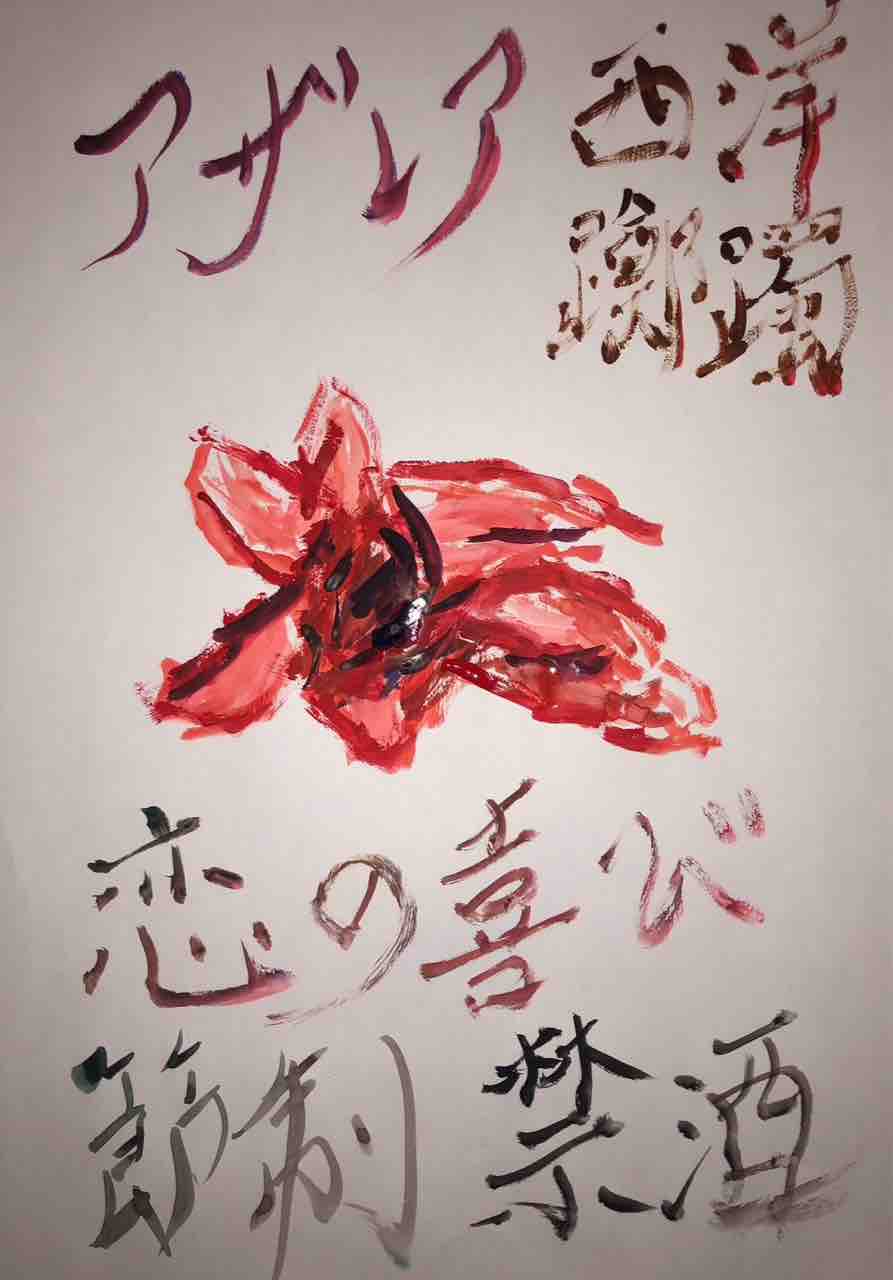 アザレア
西洋
躑躅
恋の喜び
節制 禁酒